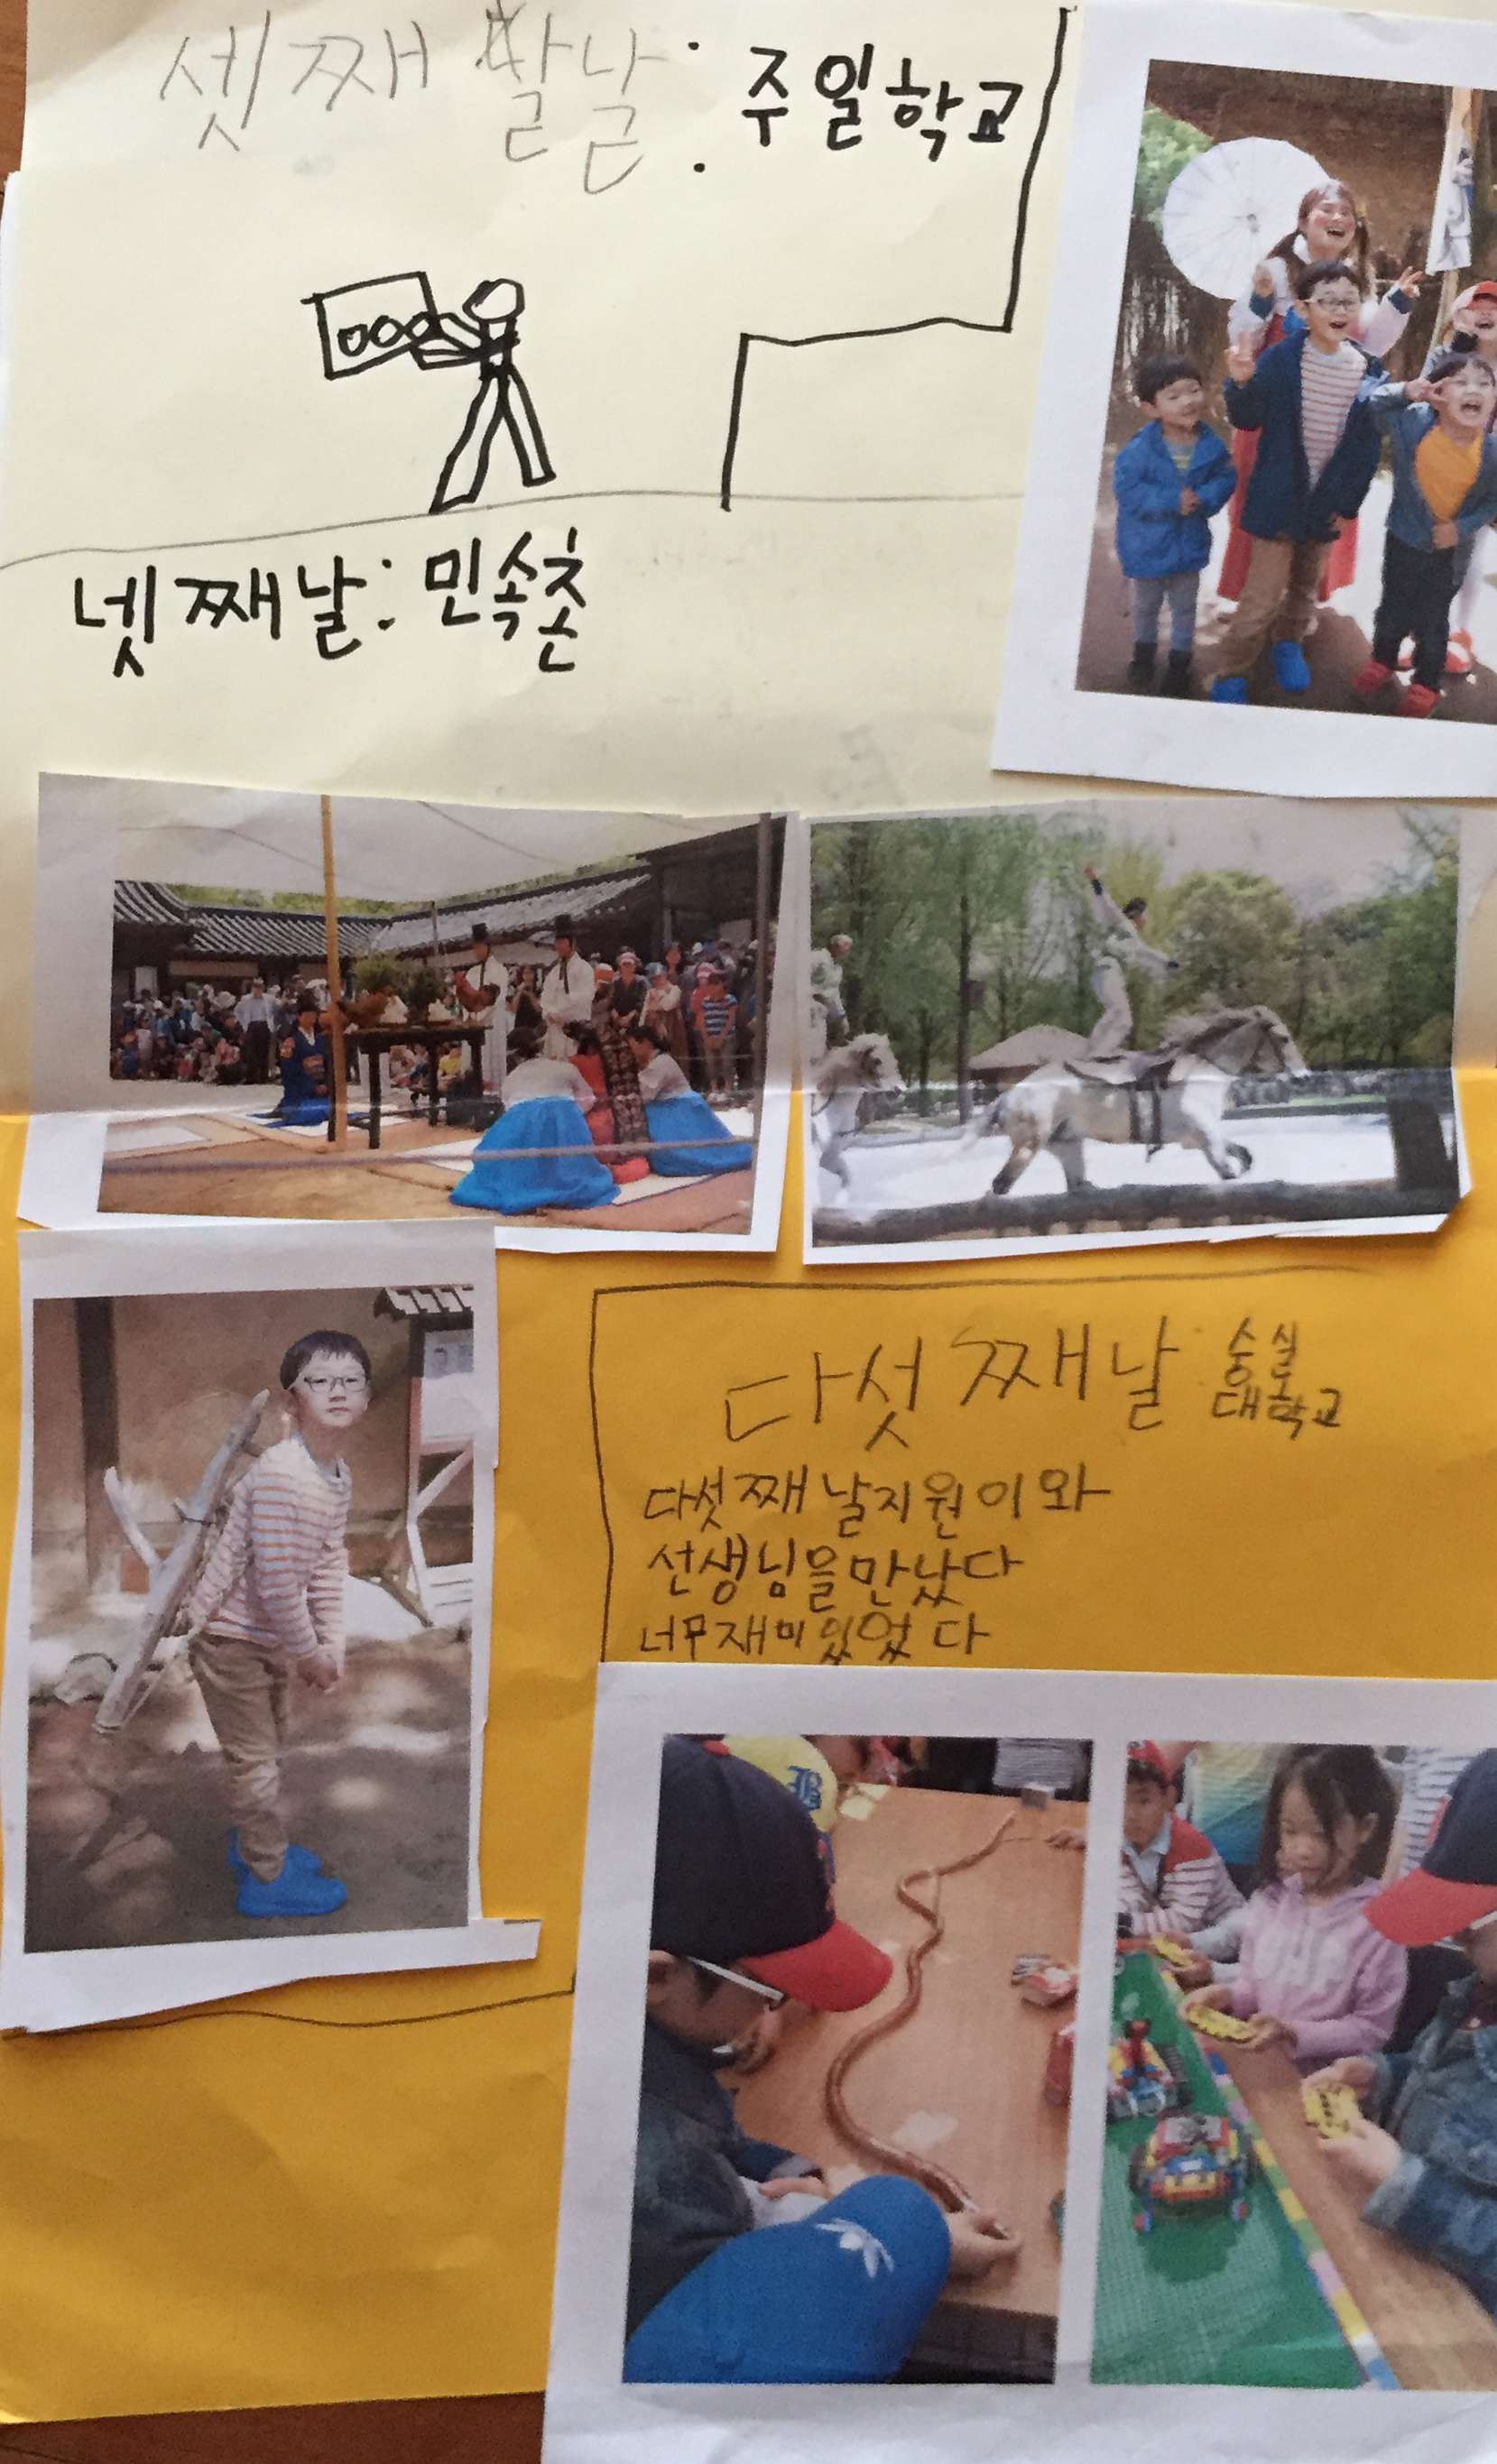 셋째 날: 주일학교
넷째날: 민속촌
다섯째날: 숭실
대학교
다섯째 날지원이와
선생님을만났다
너무재미있었다
B